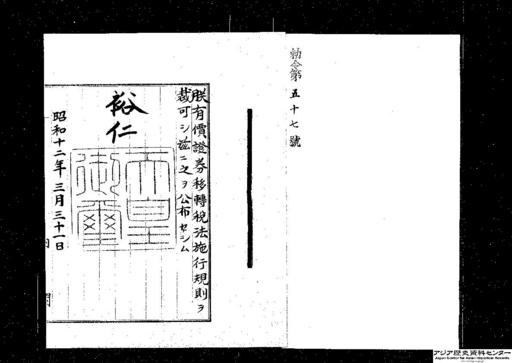 勅令第五十七號
朕有價證券移轉稅法施行規則ヲ
裁可シ茲ニ之ヲ公布セシム
裕仁
天皇御璽
昭和十二年三月三十一日
内閣
アジア歴史資料センター
Japan Center for Asian Historical Records